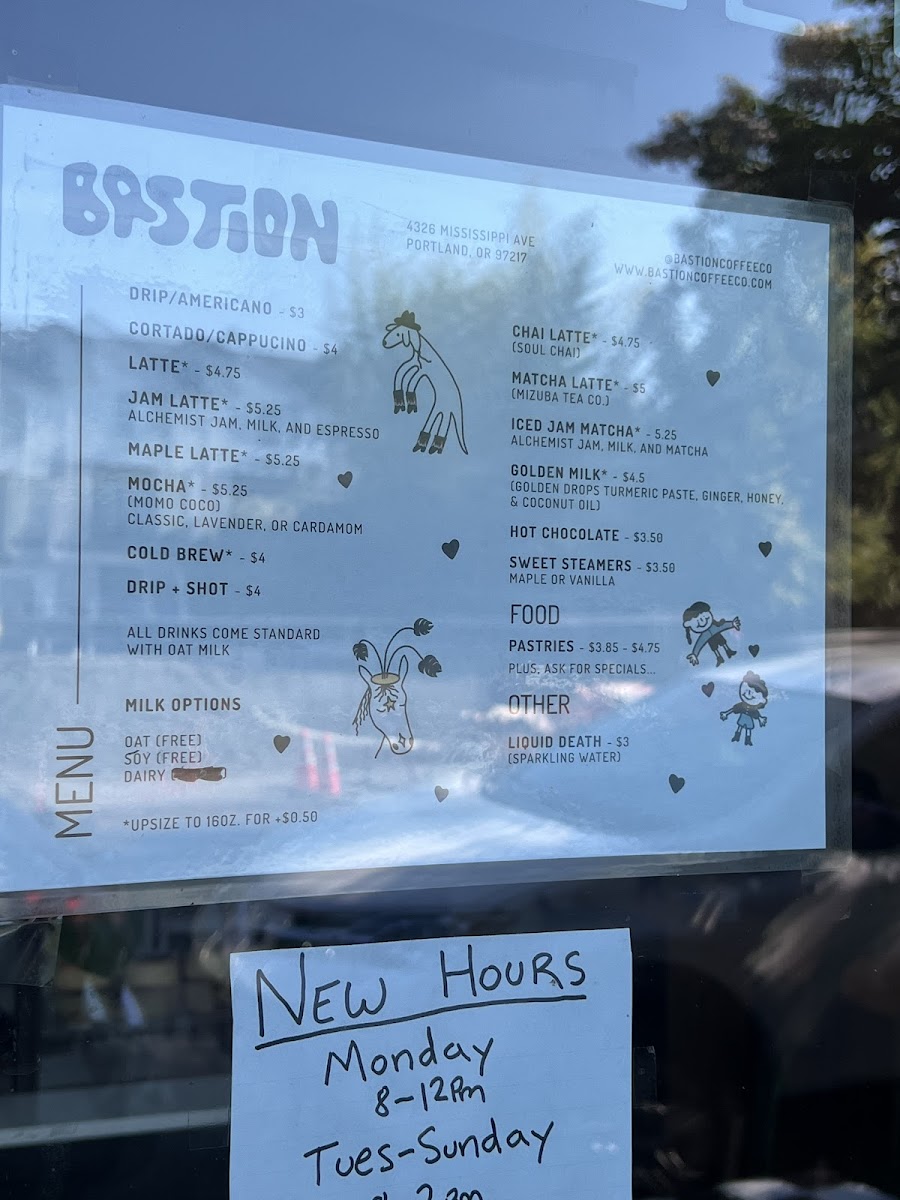 BASTION
4326 MISSISSIPPI AVE
PORTLAND, OR 97217
@BASTIONCOFFEECO
WWW.BASTIONCOFFEECO.COM
MENU
DRIP/AMERICANO - $3
CORTADO/CAPPUCINO - $4
LATTE* - $4.75
JAM LATTE* - $5.25
ALCHEMIST JAM, MILK, AND ESPRESSO
MAPLE LATTE* - $5.25
MOCHA* - $5.25
(MOMO COCO)
CLASSIC, LAVENDER, OR CARDAMOM
COLD BREW* - $4
DRIP + SHOT - $4
ALL DRINKS COME STANDARD
WITH OAT MILK
MILK OPTIONS
OAT (FREE)
SOY (FREE)
DAIRY
*UPSIZE TO 16OZ. FOR +$0.50
CHAI LATTE* - $4.75
(SOUL CHAI)
MATCHA LATTE* - $5
(MIZUBA TEA CO.)
ICED JAM MATCHA* - 5.25
ALCHEMIST JAM, MILK, AND MATCHA
GOLDEN MILK* - $4.5
(GOLDEN DROPS TURMERIC PASTE, GINGER, HONEY,
& COCONUT OIL)
HOT CHOCOLATE - $3.50
SWEET STEAMERS - $3.50
MAPLE OR VANILLA
FOOD
PASTRIES - $3.85 - $4.75
PLUS, ASK FOR SPECIALS...
OTHER
LIQUID DEATH - $3
(SPARKLING WATER)
NEW HOURS
Monday
8-12pm
Tues-Sunday